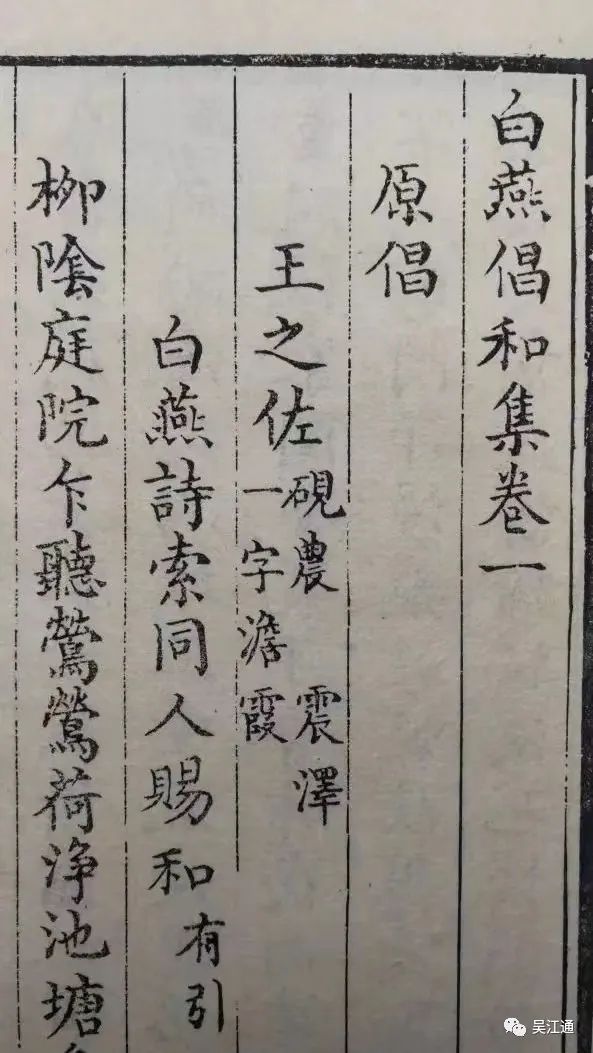 白燕倡和集卷一
原倡
王之佐 硯農 震澤 一字澹霞
白燕詩索同人賜和 有引
柳陰庭院乍聽鶯鶯荷浄池塘
吴江通